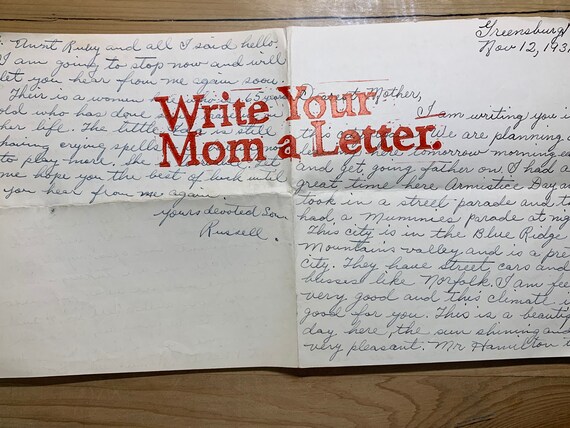 Aunt Ruby and all I said hello.
I am going to stop now and will
let you hear from me again soon.
Their is a women 65 years
old who has done
her life. The little is still
haing crying spells
to play more, the
me hope you the best of luck until
you hear from me again.
yours devoted Son
Russell.
Write Your
Mom a Letter.
Greensburg
Nov 12, 193
Dearest Mother,
I am writing you
this We are planning
here tomorrow morning
and get going father on. I had a
great time here Armistice Day
took in a street parade and
had a Mummies parade at nig
This city is in the Blue Ridge
Mountains valley and is a pre
city. They have street cars and
blisses like Norfolk. I am fee
very good and this climat i
good for you. This is a beauti
day here, the sun shining and
very pleasant. Mr Hamilton